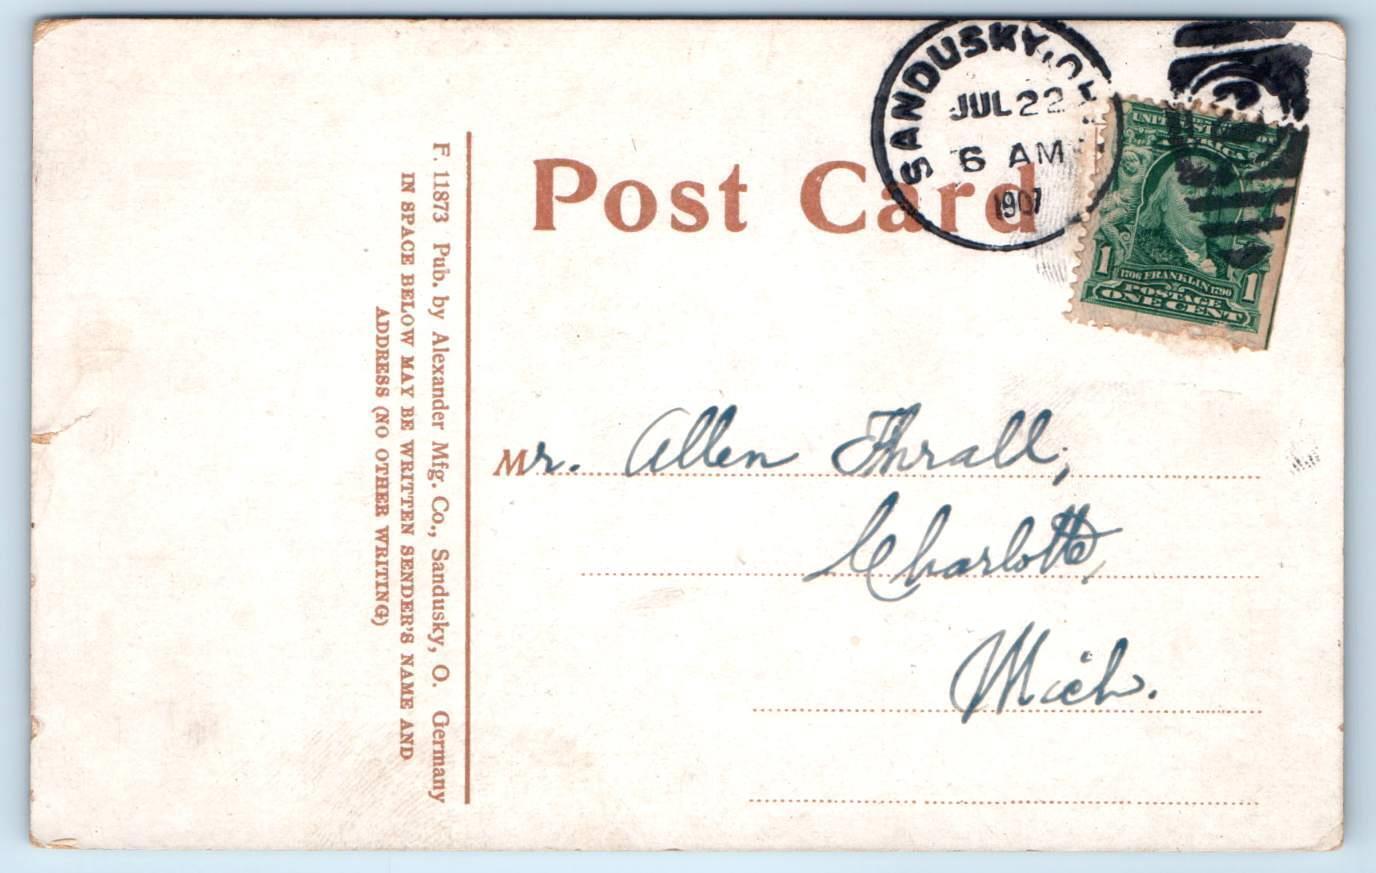 F. 11873 Pub. by Alexander Mfg. Co., Sandusky, O. Germany
IN SPACE BELOW MAY BE WRITTEN SENDER'S NAME AND
ADDRESS (NO OTHER WRITING)
Post Card
SANDUSKY, OH
JUL 22
6 AM
1907
UNITED STATES OF
AMERICA
1 1706 FRANKLIN 1790 1
POSTAGE
ONE CENT
Mr. Allen Thrall,
Charlotte,
Mich.